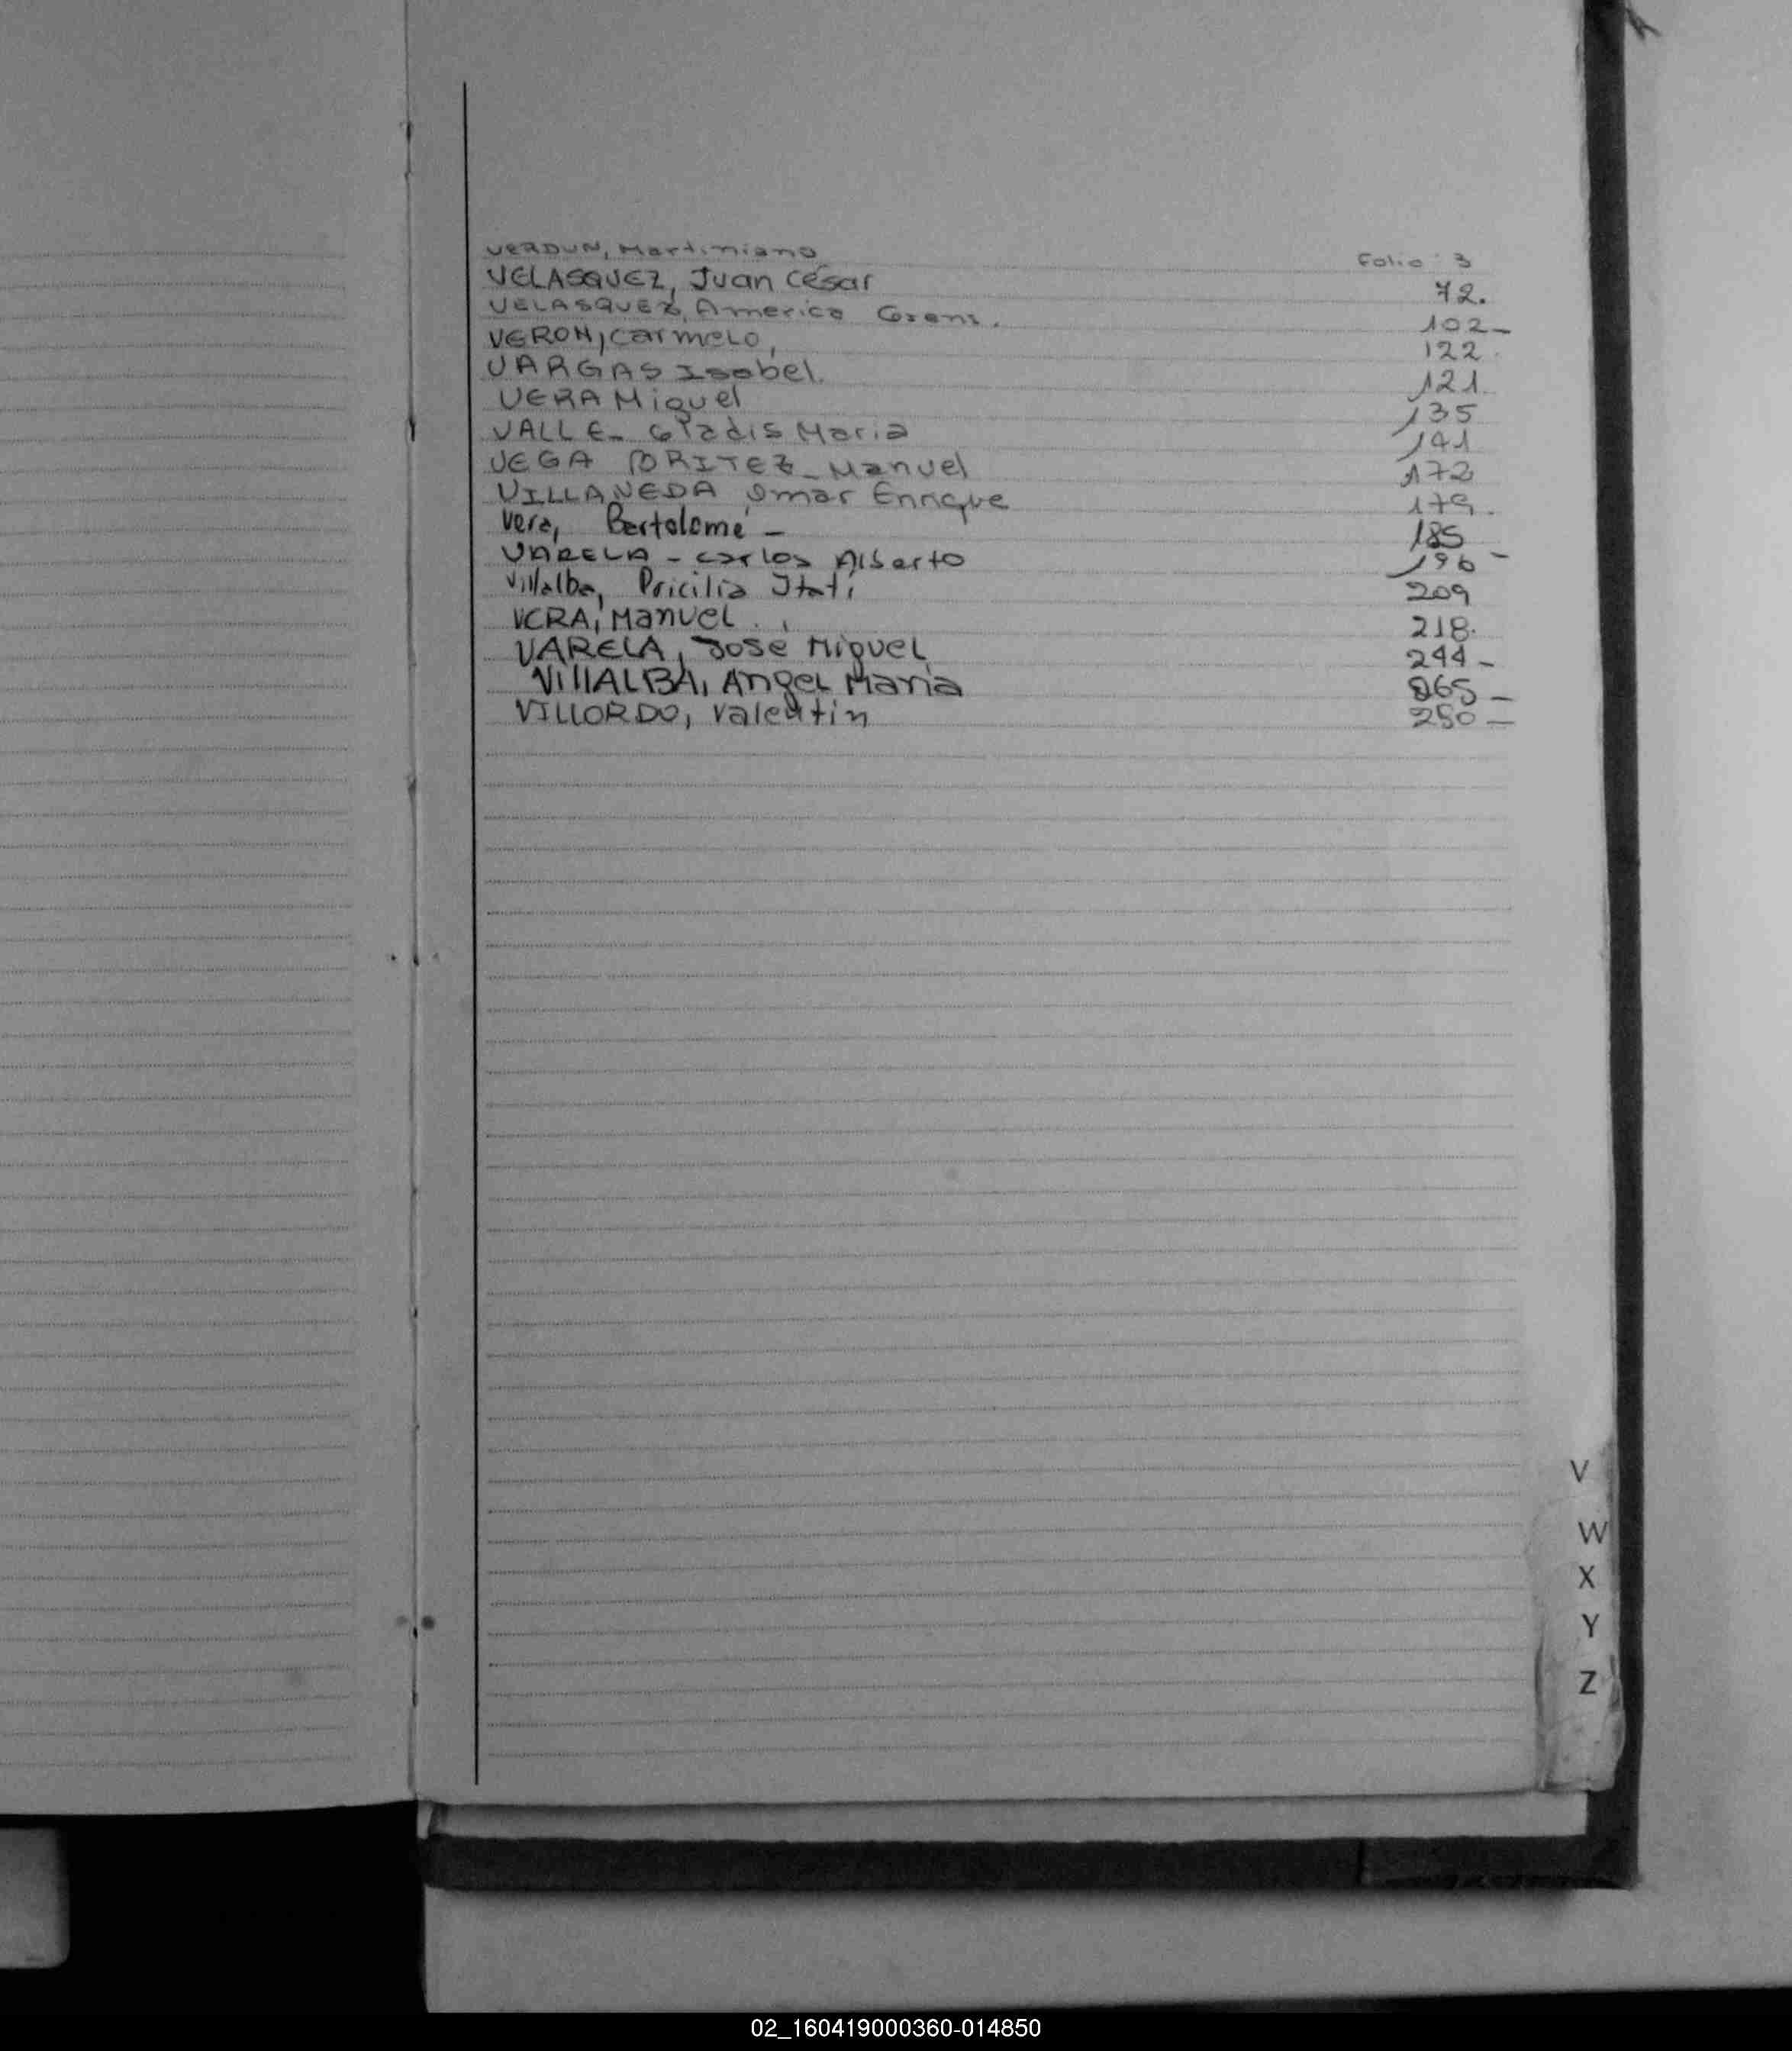 VERDUN, Martiniano Folio 3
VELASQUEZ, Juan César 72.
VELASQUEZ, Americo 102-
VERON, Carmelo, 122.
VARGAS Isabel. 121.
VERA Miguel 135
VALLE- Gladis Maria 141
VEGA BRITEZ- Manuel 172
VILLANEDA Omar Enrique 179.
Vera, Bertolomé - 185
VARELA - Carlos Alberto 196 -
Villalba, Pricilia Itatí 209
VERA, Manuel . . 218.
VARELA, José Miguel 244 -
VillALBA, Angel Maria 265 -
VILLORDO, Valentin 250 -
V
W
X
Y
Z
02_160419000360-014850